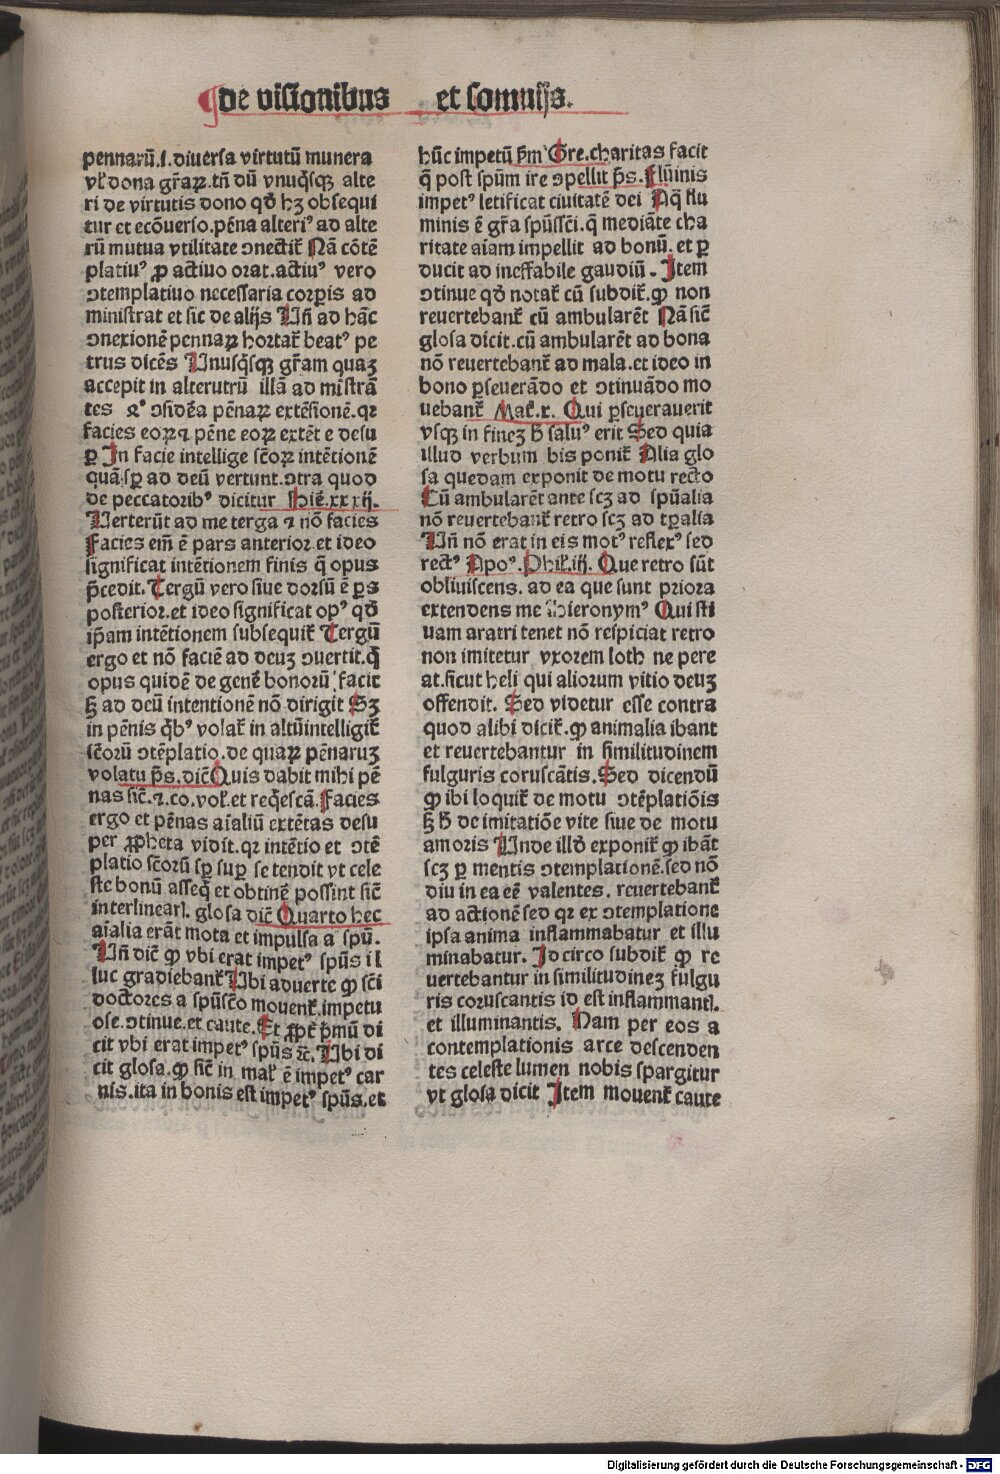 ¶de visionibus et somnijs.
pennarū.i. diuersa virtutū munera
vl' dona gr̄aꝝ. tn̄ dū vnuq̄sqꝫ alte
ri de virtutis dono qđ hꝫ obsequi
tur et ecōuerso. pēna alteriꝰ ad alte
rū mutua vtilitate ꝯnectit᷑ Nā cōtē
platiuꝰ ꝓ actiuo orat. actiuꝰ vero
ꝯtemplatiuo necessaria corꝑis ad
ministrat et sic de alijs Vn̄ ad hāc
ꝯnexionē pennaꝝ hortat᷑ beatꝰ pe
trus dicēs Vnusq̄sqꝫ gr̄am quaꝫ
accepit in alterutrū illā ad mīstrā
tes ꝯsidēa pēnaꝝ extēsionē. qꝛ
facies eoꝝ ⁊ pēne eoꝝ extēt e desu
ꝑ In facie intellige sc̄oꝝ intētionē
quā sꝑ ad deū vertunt. ꝯtra quod
de peccatoribꝰ dicitur Hie. xxxij.
Verterūt ad me terga ⁊ nō facies
Facies em̄ ē pars anterior et ideo
significat intētionem finis q̄ opus
p̄cedit. Tergū vero siue dorsū ē ꝑs
posterior. et ideo significat opꝰ qđ
ip̄am intētionem subsequit᷑ Tergū
ergo et nō faciē ad deuꝫ ꝯuertit. q̄
opus quidē de gene᷑ bonorū facit
ꝫ ad deū intentionē nō dirigit Sꝫ
in pēnis q̄bꝰ volat᷑ in altū intelligit᷑
sc̄orū ꝯtēplatio. de quaꝝ pēnaruꝫ
volatu p̄s. dic̄ Quis dabit mihi pē
nas sic̄. ⁊. co. vol'. et req̄escā. Facies
ergo et pēnas aīaliū extētas desu
per ꝓpheta vidit. qꝛ intētio et ꝯtē
platio sc̄orū sꝑ suꝑ se tendit vt cele
ste bonū asseq̄ et obtinē possint sic̄
interlineari. glosa dic̄ Quarto hec
aīalia erāt mota et impulsa a spū.
Vn̄ dic̄ ꝙ vbi erat impetꝰ spūs il
luc gradiebant᷑ Vbi aduerte ꝙ sc̄i
doctores a spūsc̄o mouent᷑. impetu
ose. ꝯtinue. et caute. Et ꝓpt᷑ p̄mū di
cit vbi erat impetꝰ spūs ⁊c̄. Vbi di
cit glosa. ꝙ sic̄ in mal' ē impetꝰ car
nis. ita in bonis est impetꝰ spūs. et
hūc impetū p̄m̄ Gre. charitas facit
q̄ post spūm ire ꝯpellit p̄s. Flūinis
impetꝰ letificat ciuitatē dei Aq̄ flu
minis ē gr̄a spūssc̄i. q̄ mediāte cha
ritate aīam impellit ad bonū. et ꝑ
ducit ad ineffabile gaudiū. Item
ꝯtinue qđ notat᷑ cū subdit᷑. ꝙ non
reuertebant᷑ cū ambularēt Nā sic̄
glosa dicit. cū ambularēt ad bona
nō reuertebant᷑ ad mala. et ideo in
bono ꝑseuerādo et ꝯtinuādo mo
uebant᷑ Mat᷑. x. Qui ꝑseuerauerit
vsqꝫ in fineꝫ h̄ saluꝰ erit Sed quia
illud verbum bis ponit᷑ Alia glo
sa quedam exponit de motu recto
Cū ambularēt ante scꝫ ad spūalia
nō reuertebant᷑ retro scꝫ ad tꝑalia
Vn̄ nō erat in eis motꝰ reflexꝰ sed
rectꝰ Apoꝰ. Phil'. iij. Que retro sūt
obliuiscens. ad ea que sunt priora
extendens me Hieronymꝰ Qui sti
uam aratri tenet nō respiciat retro
non imitetur vxorem loth ne pere
at. sicut heli qui aliorum vitio deuꝫ
offendit. Sed videtur esse contra
quod alibi dicit᷑. ꝙ animalia ibant
et reuertebantur in similitudinem
fulguris coruscātis. Sed dicendū
ꝙ ibi loquit᷑ de motu ꝯtēplatiōis
ꝫ h̄ de imitatiōe vite siue de motu
amoris Vnde illđ exponit᷑ ꝙ ibāt
scꝫ ꝑ mentis ꝯtemplationē. sed nō
diu in ea eē valentes. reuertebant᷑
ad actionē sed qꝛ ex ꝯtemplatione
ipsa anima inflammabatur et illu
minabatur. Idcirco subdit᷑ ꝙ re
uertebantur in similitudineꝫ fulgu
ris coruscantis id est inflammanti.
et illuminantis. Nam per eos a
contemplationis arce descenden
tes celeste lumen nobis spargitur
vt glosa dicit Item mouent᷑ caute
Digitalisierung gefördert durch die Deutsche Forschungsgemeinschaft - DFG